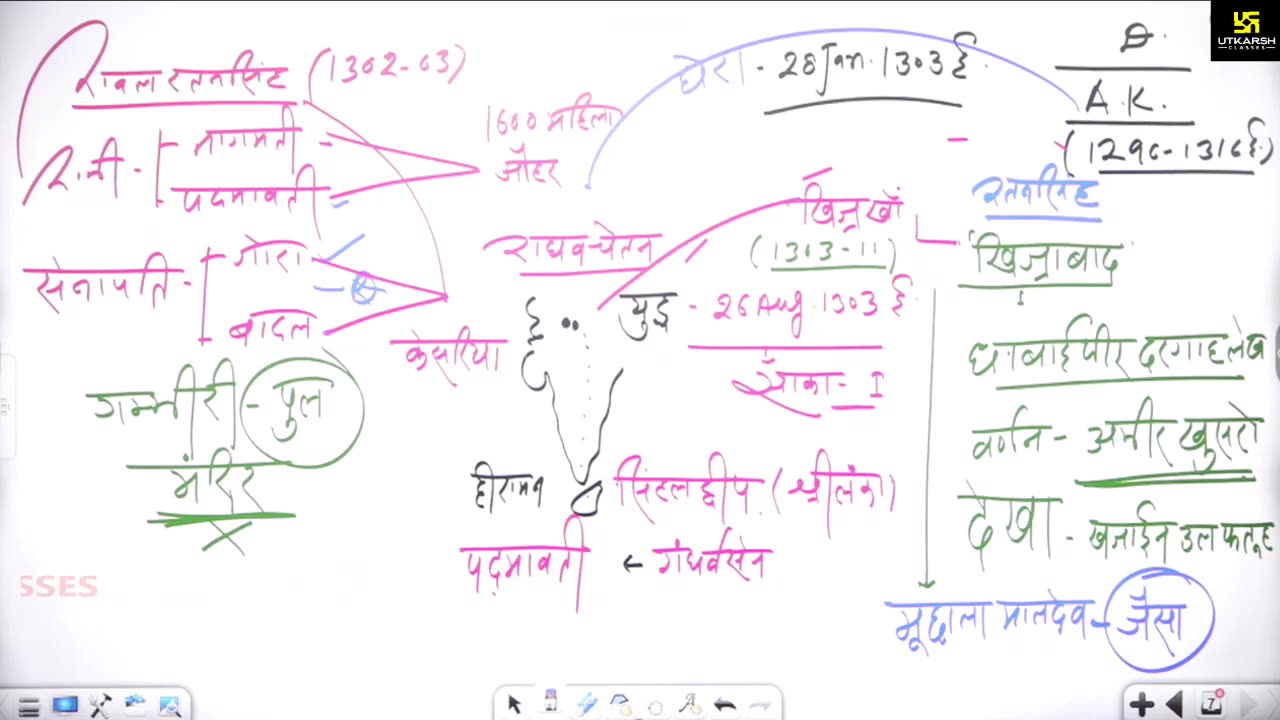 रावल रतनसिंह (1302-03)
रानी - नागमती -
पदमावती -
1600 महिला
जौहर
सेनापति - गोरा
बादल
केसरिया
गम्भीरी - पुल
मंदिर
घेरा - 28 Jan. 1303 ई.
D.
A.K.
(1296-1316 ई.)
राघव चेतन
खिज्र खाँ
(1303-11)
युद्ध - 26 Aug. 1303 ई.
साका - I
हीरामन
सिंहलद्वीप (श्रीलंका)
पद्मावती ← गंधर्वसेन
रतनसिंह
खिज्राबाद
धाबाई पीर दरगाह लेख
वर्णन - अमीर खुसरो
देखा - खजाईन उल फतूह
मूछाला मालदेव - जैसा
UTKARSH
CLASSES
SSES
7